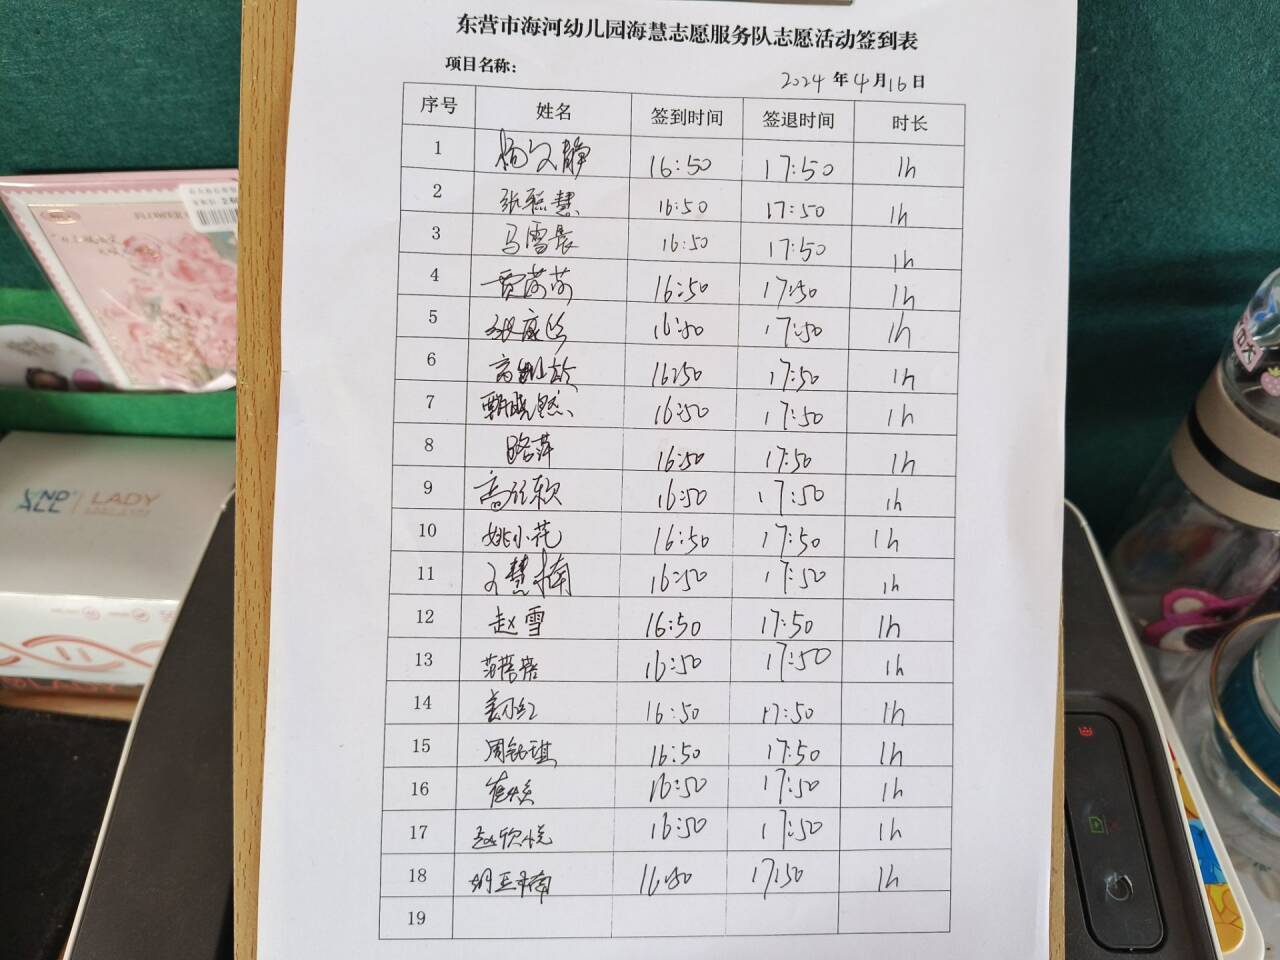 东营市海河幼儿园海慧志愿服务队志愿活动签到表
项目名称：
2024年4月16日
序号 姓名 签到时间 签退时间 时长
1 杨文静 16:50 17:50 1h
2 张聪慧 16:50 17:50 1h
3 马雪晨 16:50 17:50 1h
4 贾莎莎 16:50 17:50 1h
5 16:50 17:50 1h
6 16:50 17:50 1h
7 16:50 17:50 1h
8 路萍 16:50 17:50 1h
9 高欣颖 16:50 17:50 1h
10 姚小花 16:50 17:50 1h
11 王慧楠 16:50 17:50 1h
12 赵雪 16:50 17:50 1h
13 范蓓蓓 16:50 17:50 1h
14 16:50 17:50 1h
15 周铭琪 16:50 17:50 1h
16 16:50 17:50 1h
17 赵欣悦 16:50 17:50 1h
18 胡亚楠 16:50 17:50 1h
19
LADY